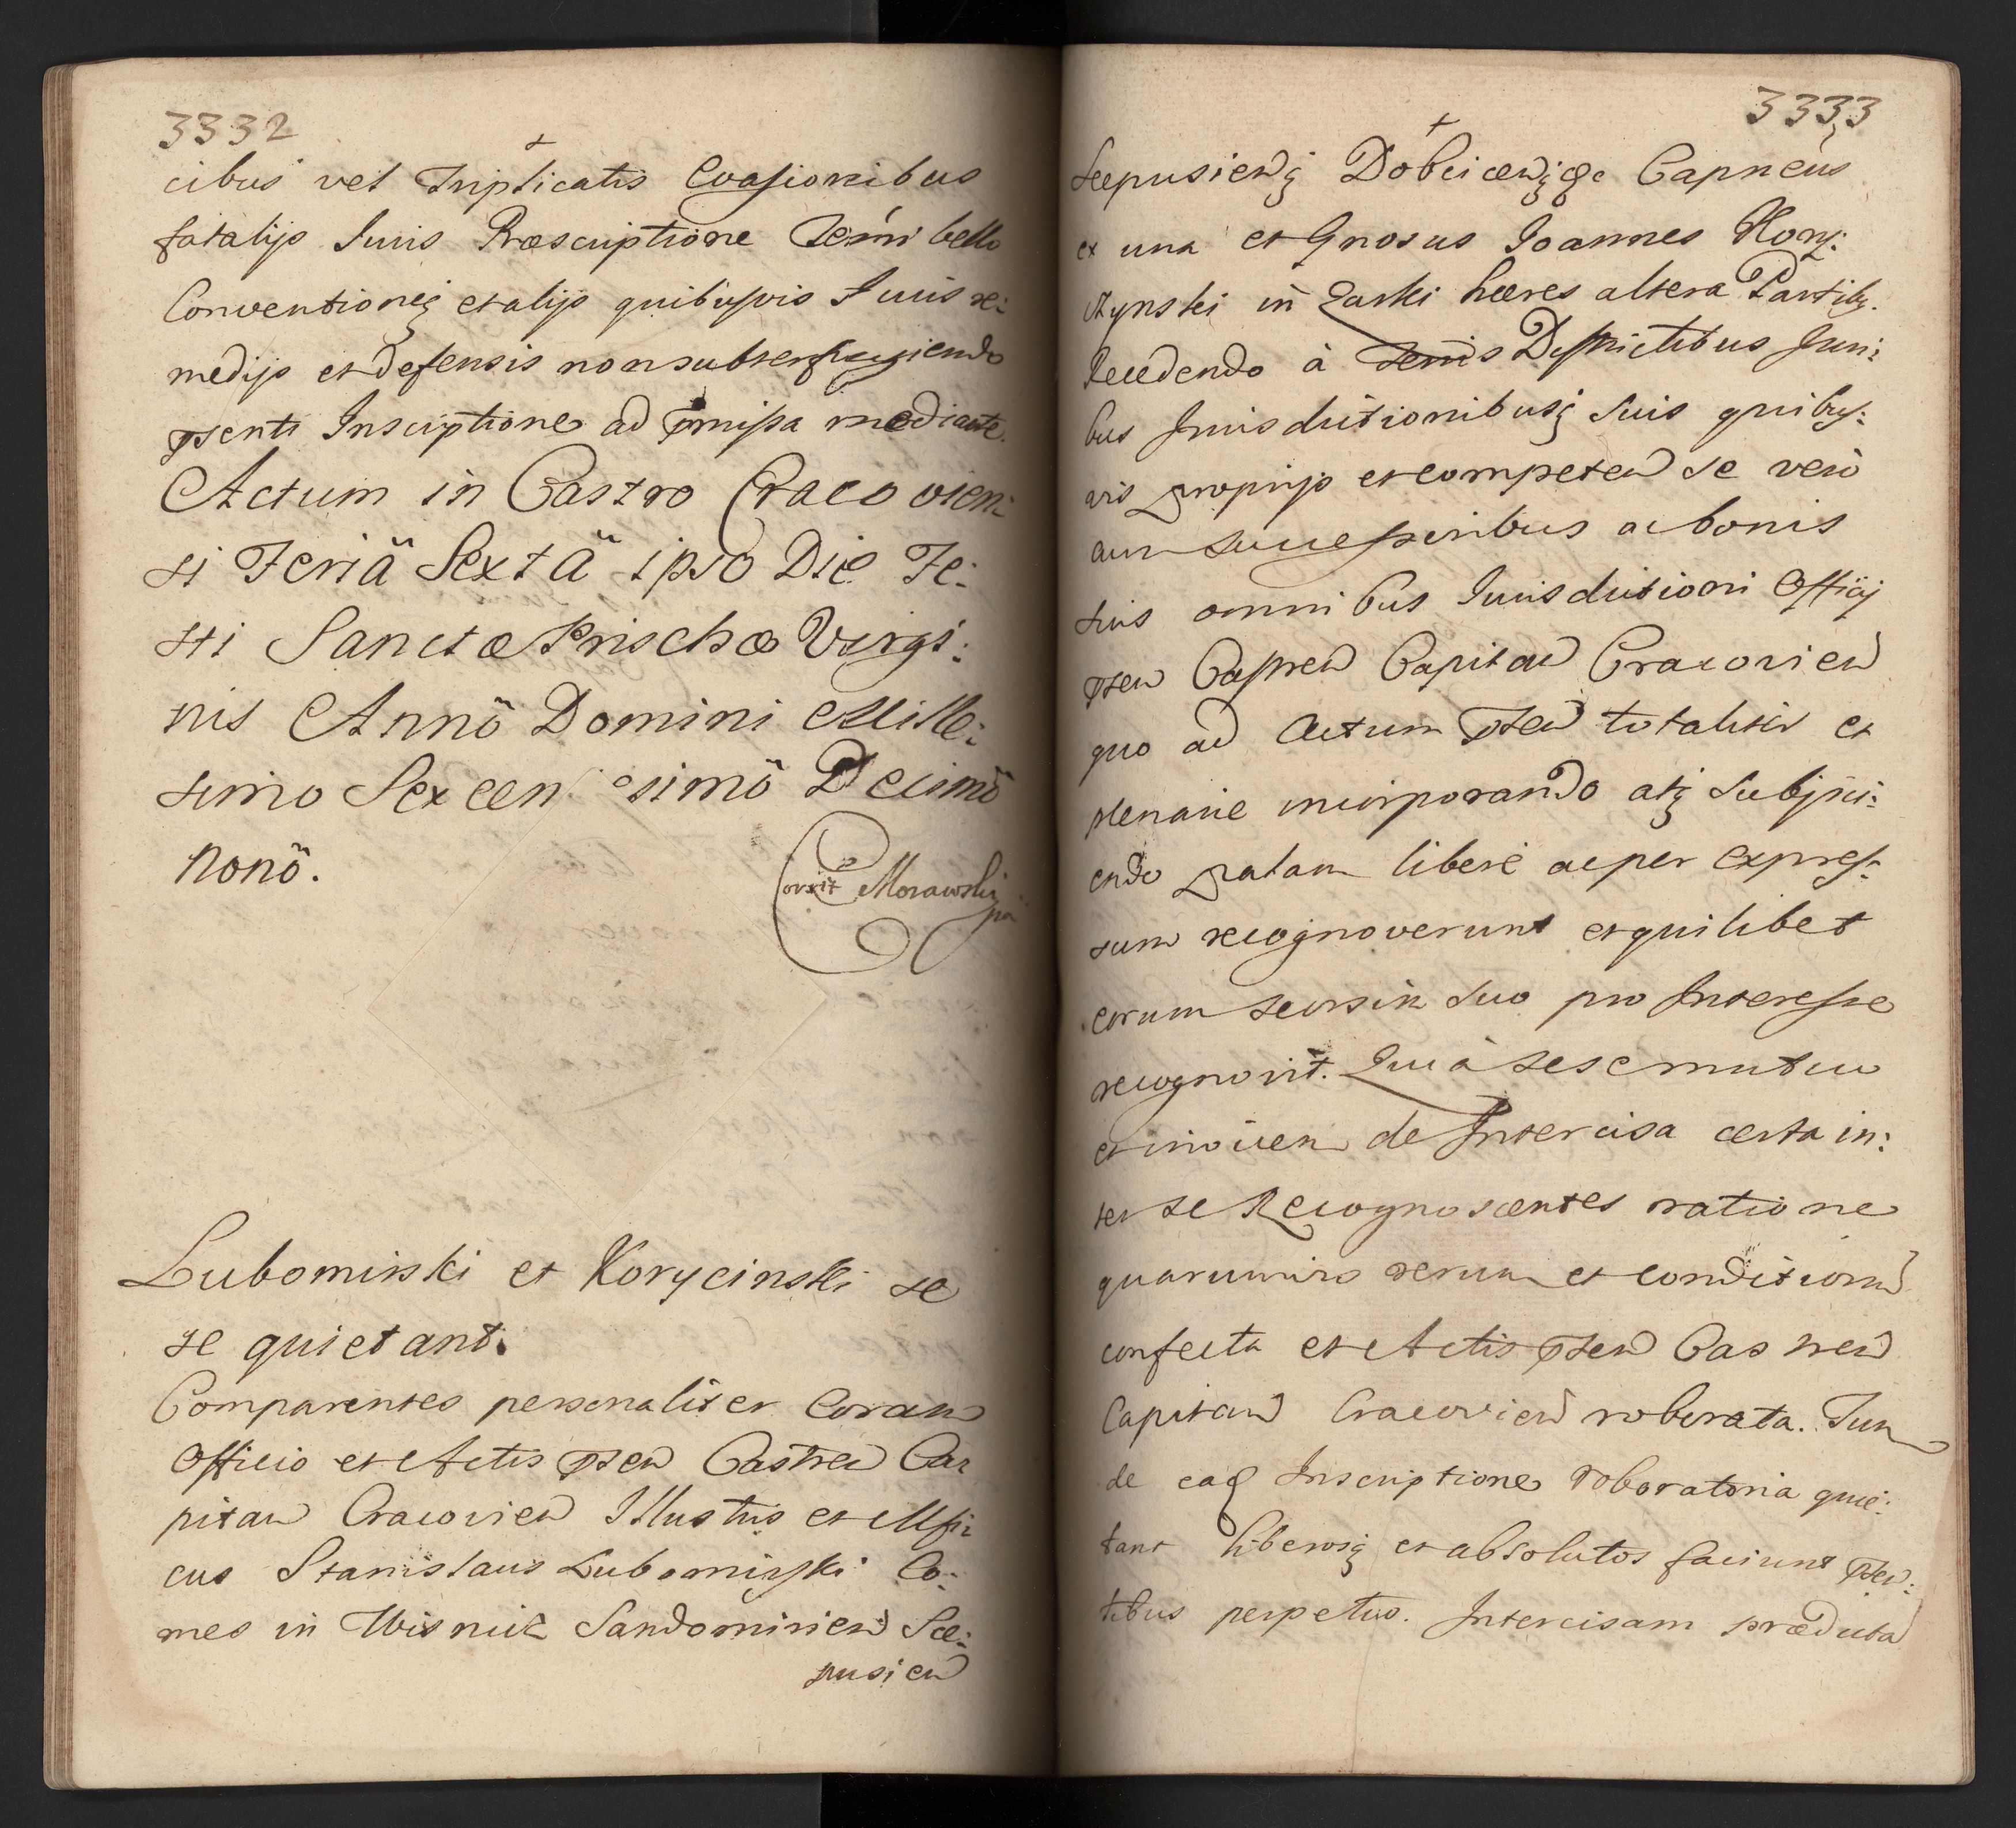 3332
cibus vel Triplicatis Evasionibus
fatalijs Iuris Præscriptione Termi bello
Conventioneq et alijs quibusvis Iuris re:
medijs et defensis non subterfugiendo
psenti Inscriptione ad pmissa mediante.
Actum in Castro Cracovien:
si Feriâ Sextâ ipso Die Fe:
sti Sanctæ Prischæ Virgi:
nis Annô Domini Mille:
simo Sexcen esimô Decimô
Nonô.
corrxit Morawski
Lubomirski et Korycinski se
se quietant.
Comparentes personaliter Coram
Officio et Actis psen Castren Ca:
pitan Cracovien Illustris et Mfi:
cus Stanislaus Lubomirski Co:
mes in Wisnicz Sandomirien Sce:
pusien
3333
Scepusienq Dobcicenq &c Capneus
ex una et Gnosus Ioannes Kory:
czynski in Zarki hæres altera Partibq.
Recedendo à Terris Districtibus Juri:
bus Jurisdictionibusq suis quibus:
vis proprijs et competen se vero
cum successoribus ac bonis
suis omnibus Iurisdictioni Officij
psen Castren Capitan Cracovien
quo ad Actum psen totaliter et
plenarie incorporando atq subjici:
endo palam libere ac per expres:
sum recognoverunt et quilibet
eorum seorsim suo pro Interesse
recognovit. Quia sese mutuo
et invicem de Intercisa certa in:
ter se Recognoscentes ratione
quarumvis rerum et conditionu
confecta et Actis psen Castren
Capitan Cracovien roborata. Tum
de eaq Inscriptione roboratoria quie:
tant liberosq et absolutos faciunt psen:
tibus perpetuo. Intercisam prædicta